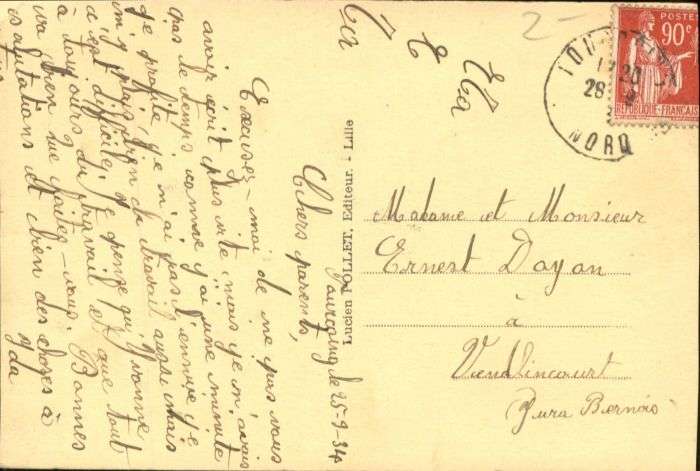 Tourcoing le 25-9-34
Chers parents,
Excusez-moi de ne pas vous
avoir écrit plus vite mais je n'avais
pas le temps comme j'ai une minute
je profite, je n'ai pas l'ennuie je
m'y plais bien de travail aussi mais
a est difficile, je pense qu' Yvonne
a toujours du travail et que tout
va bien que faites-vous. Bonnes
salutations et bien des choses à
Yda
2-
POSTES
90c
REPUBLIQUE FRANÇAISE
17 20
28
NORD
Lucien PILLET, Editeur. - Lille
Madame et Monsieur
Ernest Doyon
à
Vendlincourt
Jura Bernois